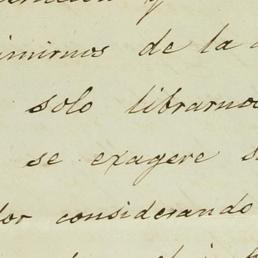 y
imirnos de la
solo librarno
se exagere s
lor considerando